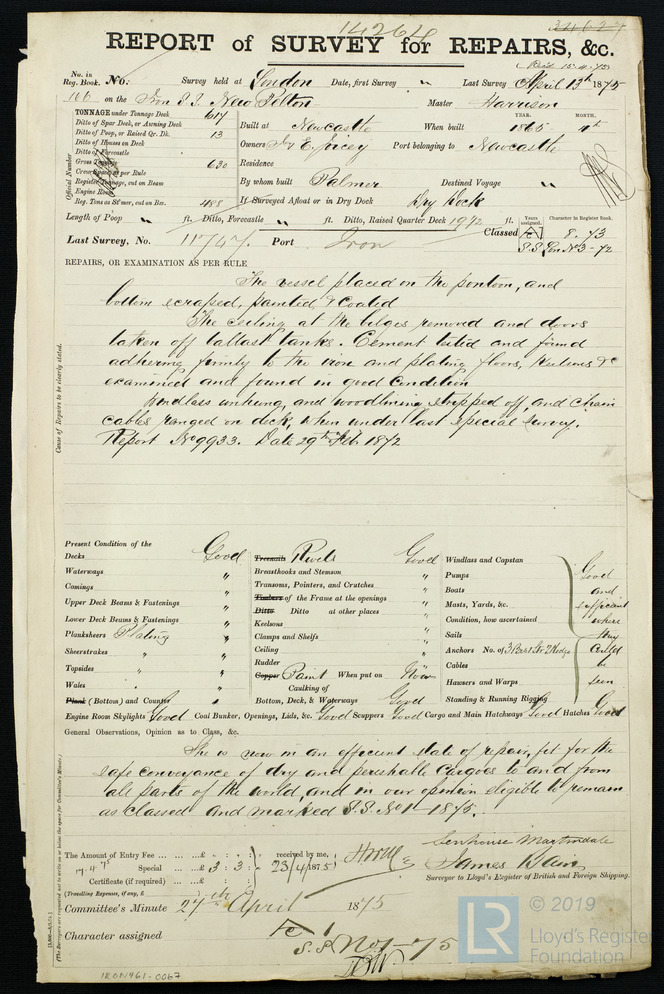 14264
REPORT of SURVEY for REPAIRS, &c.
(Recd. 15.4.75)
No. in Reg. Book. No: Survey held at London Date, first Survey " Last Survey April 13th 1875
166 on the Iron S.S. New Pelton Master Harrison
TONNAGE under Tonnage Deck 617
YEAR. MONTH.
Ditto of Spar Deck, or Awning Deck
Built at Newcastle When built 1865
Ditto of Poop, or Raised Qr. Dk. 13
Ditto of Houses on Deck
Owners Port belonging to Newcastle
Ditto of Forecastle
Gross Tonnage 630
Residence
Crew Space as per Rule
Register Tonnage, cut on Beam
By whom built Palmer Destined Voyage "
Engine Room
Reg. Tons as St'mer, cut on Bm. 488
If Surveyed Afloat or in Dry Dock Dry Dock
Official Number
Length of Poop " ft. Ditto, Forecastle " ft. Ditto, Raised Quarter Deck ft.
Years assigned. Character in Register Book.
Classed 8.73
S.S. Lon No 3-72
Last Survey, No. 11747. Port Iron
REPAIRS, OR EXAMINATION AS PER RULE
The vessel placed on the pontoon, and
bottom scraped, painted & coated
The ceiling at the bilges removed and doors
taken off ballast tanks. Cement tested and found
adhering firmly to the iron and plating floors, Keelsons &c
examined and found in good condition
Windlass unhung, and woodlining stripped off, and chain
cables ranged on deck, when under last special survey.
Report No 9933. Date 29th Feb. 1872
Cause of Repairs to be clearly stated.
Present Condition of the
Decks Good
Waterways "
Comings "
Upper Deck Beams & Fastenings "
Lower Deck Beams & Fastenings "
Planksheers Plating "
Sheerstrakes " "
Topsides " "
Wales " "
Plank (Bottom) and Counter "
Treenails Rivets Good
Breasthooks and Stemson "
Transoms, Pointers, and Crutches "
Timbers of the Frame at the openings "
Ditto Ditto at other places "
Keelsons "
Clamps and Shelfs "
Ceiling "
Rudder "
Copper Paint When put on Now
Caulking of
Bottom, Deck, & Waterways Good
Windlass and Capstan
Pumps Good
Boats and
Masts, Yards, &c. efficient
Condition, how ascertained where
Sails they
Anchors No. of 3 Best St 2 Kedge could
Cables be
Hawsers and Warps seen
Standing & Running Rigging Good
Engine Room Skylights Good Coal Bunker, Openings, Lids, &c. Good Scuppers Good Cargo and Main Hatchways Good Hatches Good
General Observations, Opinion as to Class, &c.
She is now in an efficient state of repair, fit for the
safe conveyance of dry and perishable cargoes to and from
all parts of the world, and in our opinion eligible to remain
as classed and marked S.S. No 1-1875.
(The Surveyors are requested not to write on or below the space for Committee's Minute.)
The Amount of Entry Fee ... ... ...£ : : received by me,
17.4.75 Special ... ...£ 3 : 3 : 23/4/1875
Certificate (if required) ...£ : :
(Travelling Expenses, if any, £ )
Senhouse Martindale
James
Surveyor to Lloyd's Register of British and Foreign Shipping.
Committee's Minute 27th April 1875
Character assigned
S.S. No 1-75
IRON461-0067
LR
© 2019
Lloyd's Register
Foundation